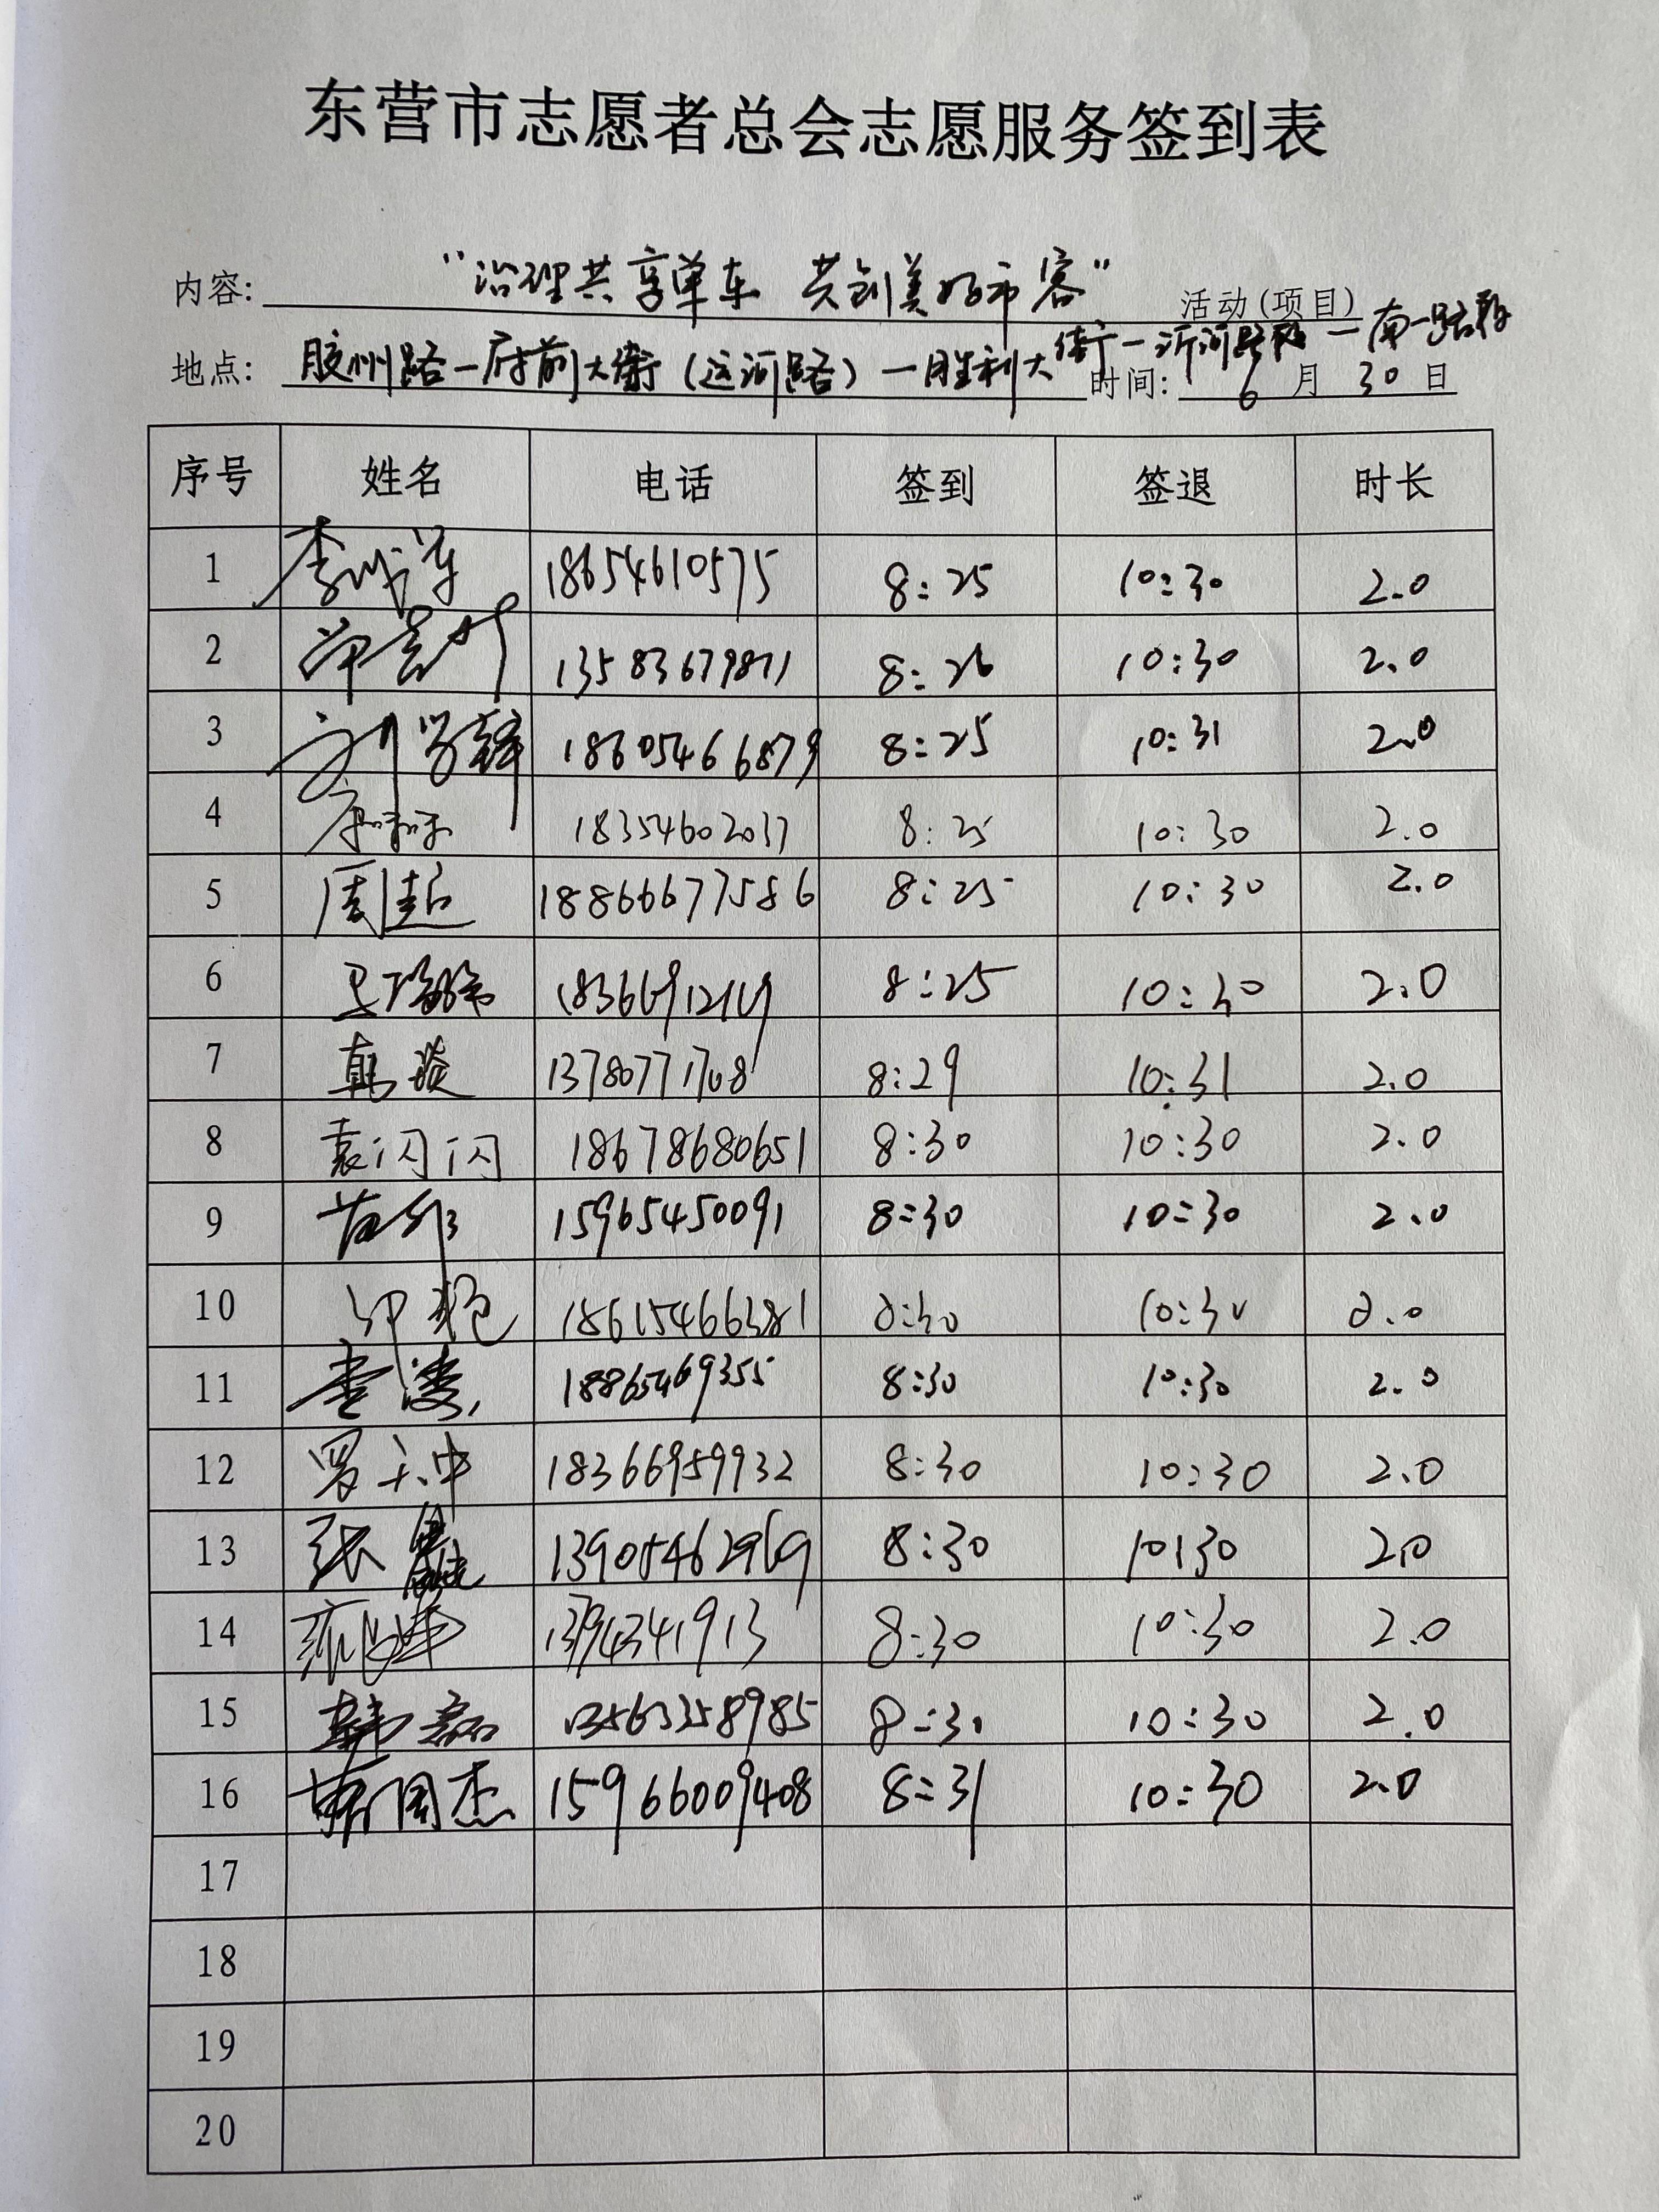 东营市志愿者总会志愿服务签到表
内容: "治理共享单车 共创美好市容" 活动(项目)
地点: 胶州路—府前大街(运河路)—胜利大街—沂河路段—南一路段 时间: 6月30日
序号 姓名 电话 签到 签退 时长
1 18654610575 8:25 10:30 2.0
2 13583679871 8:26 10:30 2.0
3 刘学锋 18605466879 8:25 10:31 2.0
4 18354602037 8:25 10:30 2.0
5 周超 18866677586 8:25 10:30 2.0
6 8:25 10:30 2.0
7 韩琰 13780771708 8:29 10:31 2.0
8 袁闪闪 18678680651 8:30 10:30 2.0
9 15965450091 8:30 10:30 2.0
10 18615466381 8:30 10:30 2.0
11 18865469355 8:30 10:30 2.0
12 18366959932 8:30 10:30 2.0
13 张 13905462969 8:30 10:30 2.0
14 8:30 10:30 2.0
15 韩磊 13563358985 8:30 10:30 2.0
16 韩国杰 15966009408 8:31 10:30 2.0
17
18
19
20